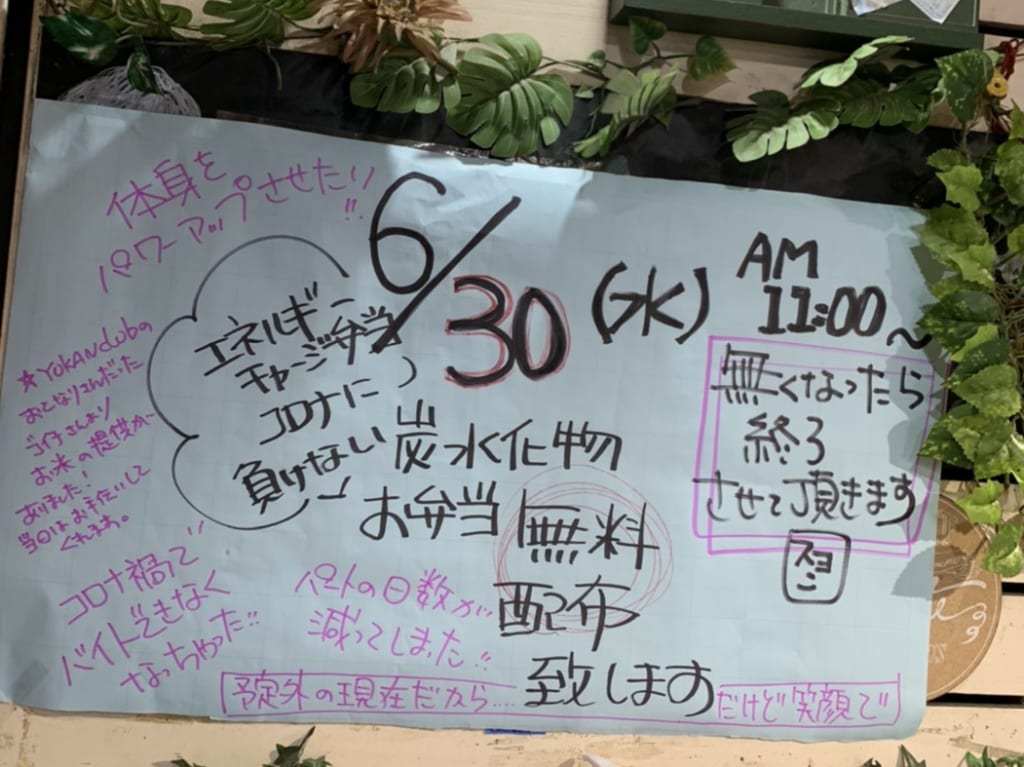 体身を
パワーアップさせたい!!
6/30(水)
AM
11:00~
エネルギー
チャージ弁当
コロナに
負けない
炭水化物
お弁当 無料
配布
致します
無くなったら
終了
させて頂きます
★YOKANclubの
おとなりさんだった
さんより
お米の提供が
ありました!
当日はお手伝いして
くれます。
コロナ禍で
バイトできなく
なっちゃった!!
パートの日数が
減ってしました!!
予定外の現在だから....
だけど笑顔で